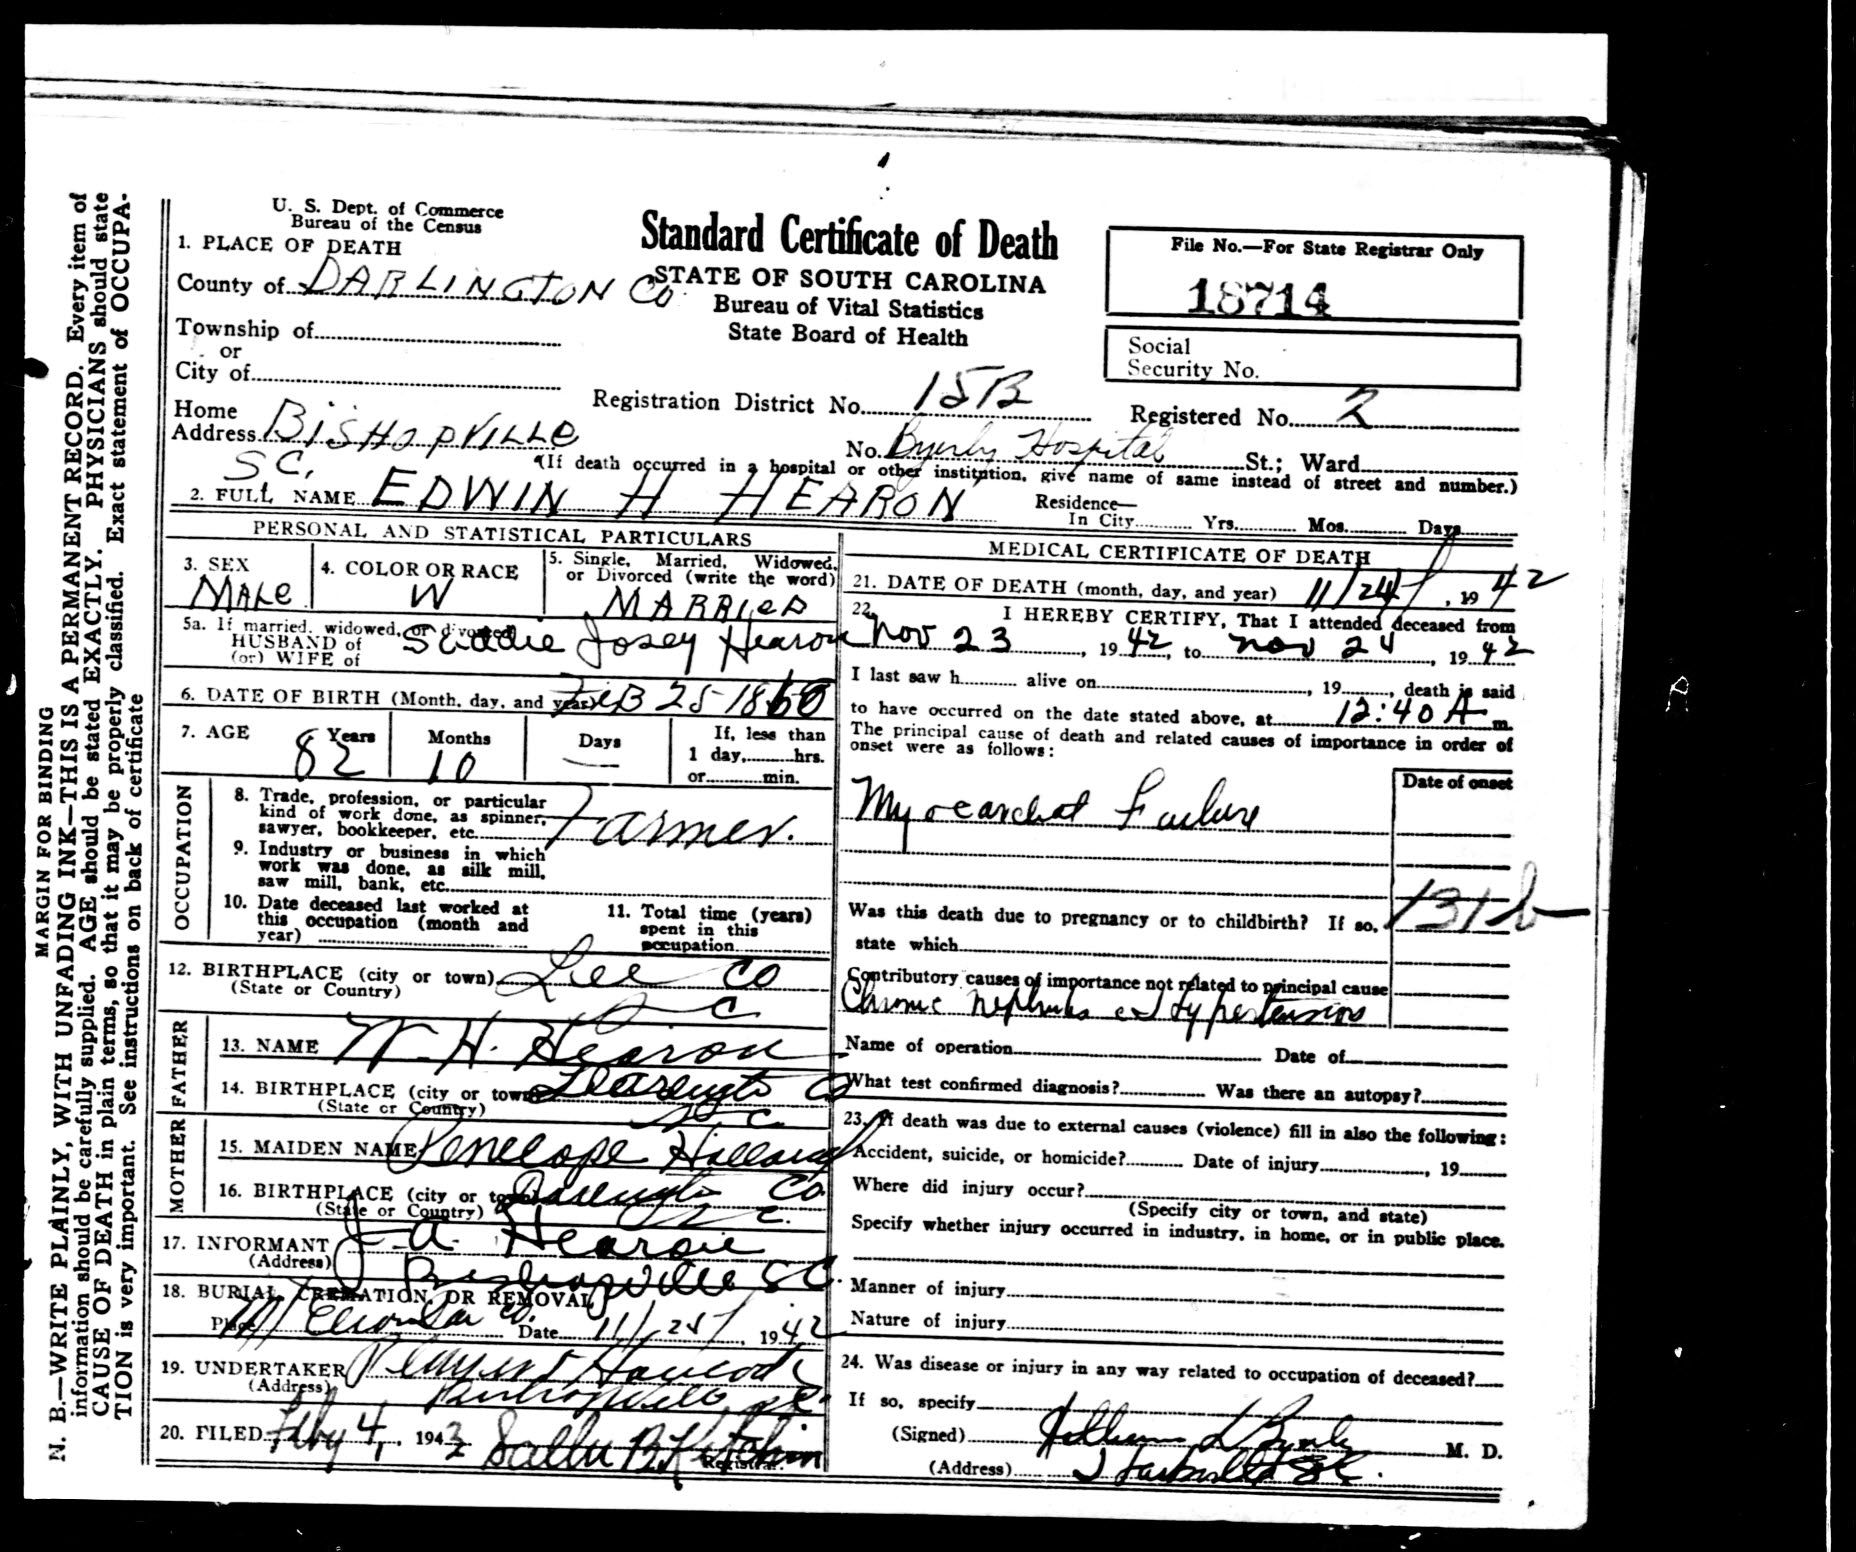 U. S. Dept. of Commerce
Bureau of the Census
1. PLACE OF DEATH
County of DARLINGTON CO
Township of
or
City of
Home
Address BISHOPVILLE
S C.
Standard Certificate of Death
STATE OF SOUTH CAROLINA
Bureau of Vital Statistics
State Board of Health
File No.—For State Registrar Only
18714
Social
Security No.
Registration District No. 15B
Registered No. 2
No. Byerly Hospital St.; Ward
(If death occurred in a hospital or other institution, give name of same instead of street and number.)
2. FULL NAME EDWIN H HEARON
Residence—
In City Yrs. Mos. Days
PERSONAL AND STATISTICAL PARTICULARS
3. SEX
MALE
4. COLOR OR RACE
W
5. Single, Married, Widowed,
or Divorced (write the word)
MARRIED
5a. If married, widowed, or divorced
HUSBAND of
(or) WIFE of
Josey Hearon
6. DATE OF BIRTH (Month, day, and year) FEB 25 1860
7. AGE
82 Years
Months
10
Days
—
If, less than
1 day, hrs.
or min.
OCCUPATION
8. Trade, profession, or particular
kind of work done, as spinner,
sawyer, bookkeeper, etc. Farmer.
9. Industry or business in which
work was done, as silk mill,
saw mill, bank, etc.
10. Date deceased last worked at
this occupation (month and
year)
11. Total time (years)
spent in this
occupation
12. BIRTHPLACE (city or town) Lee CO
(State or Country) S C
FATHER
13. NAME W. H. Hearon
14. BIRTHPLACE (city or town) Co
(State or Country) S C
MOTHER
15. MAIDEN NAME Penelope Holland
16. BIRTHPLACE (city or town) Co
(State or Country) S C.
17. INFORMANT J. A. Hearon
(Address) Bishopville S C.
18. BURIAL, CREMATION, OR REMOVAL
Place Date 11/25/, 1942
19. UNDERTAKER
(Address)
20. FILED Feby 4, 1943
Registrar.
MEDICAL CERTIFICATE OF DEATH
21. DATE OF DEATH (month, day, and year) 11/24/, 1942
22. I HEREBY CERTIFY, That I attended deceased from
Nov 23, 1942, to Nov 24, 1942
I last saw h alive on , 19 , death is said
to have occurred on the date stated above, at 12:40 A m.
The principal cause of death and related causes of importance in order of
onset were as follows:
Date of onset
Myocardial Failure
131b
Was this death due to pregnancy or to childbirth? If so,
state which
Contributory causes of importance not related to principal cause
Chronic Nephritis Hypertension
Name of operation Date of
What test confirmed diagnosis? Was there an autopsy?
23. If death was due to external causes (violence) fill in also the following:
Accident, suicide, or homicide? Date of injury , 19
Where did injury occur?
(Specify city or town, and state)
Specify whether injury occurred in industry, in home, or in public place.
Manner of injury
Nature of injury
24. Was disease or injury in any way related to occupation of deceased?
If so, specify
(Signed) M. D.
(Address)
MARGIN FOR BINDING
N. B.—WRITE PLAINLY, WITH UNFADING INK—THIS IS A PERMANENT RECORD. Every item of
information should be carefully supplied. AGE should be stated EXACTLY. PHYSICIANS should state
CAUSE OF DEATH in plain terms, so that it may be properly classified. Exact statement of OCCUPA-
TION is very important. See instructions on back of certificate